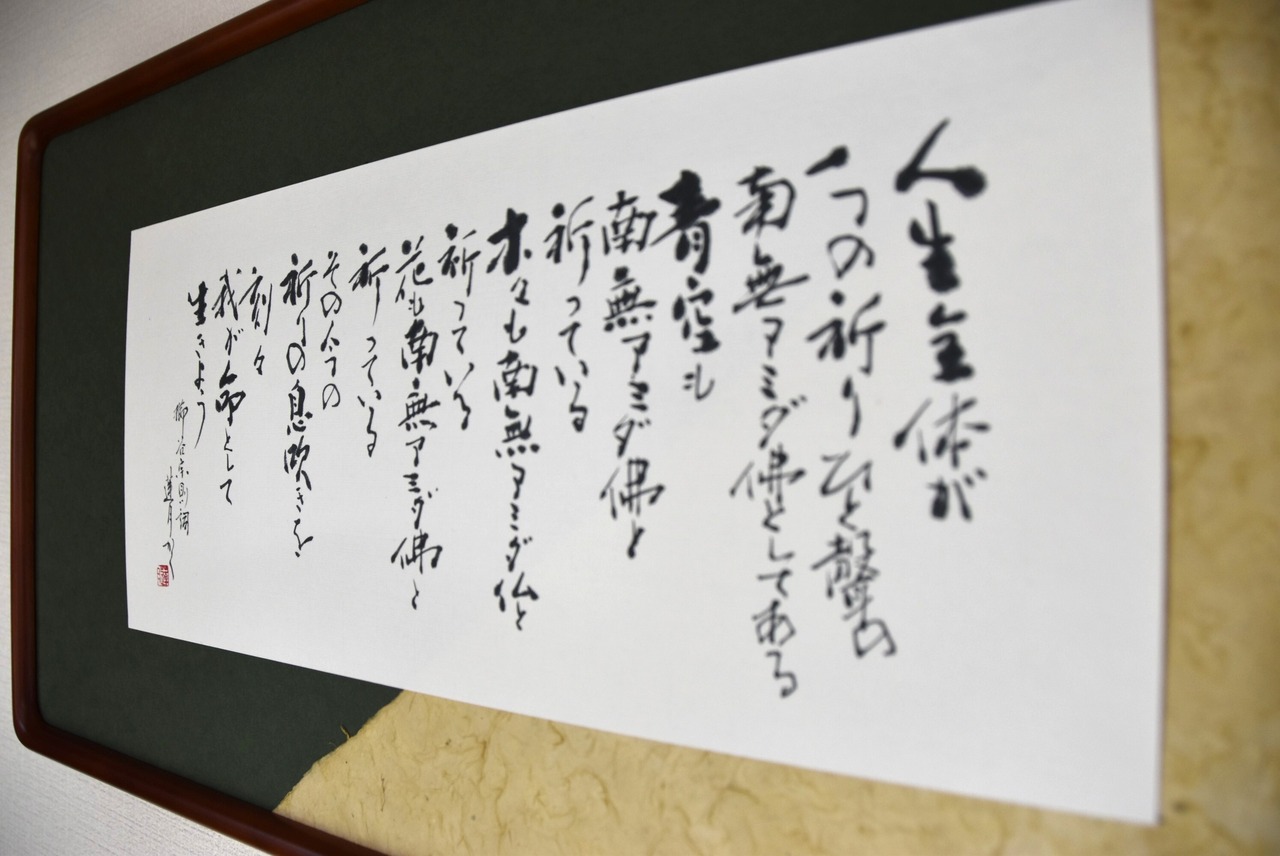 人生全体が
一つの祈りひと聲の
南無アミダ佛としてある
青空も
南無アミダ佛と
祈っている
木々も南無アミダ仏と
祈っている
花も南無アミダ佛と
祈っている
その今の
祈りの息吹きを
刻々
我が命として
生きよう
蓮月かく